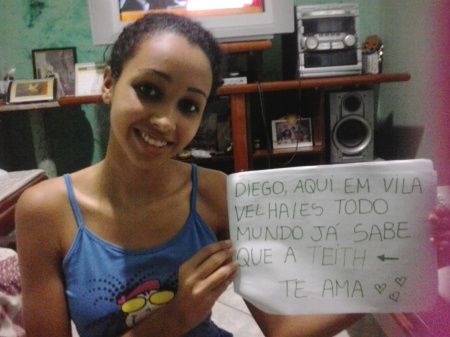 DIEGO, AQUI EM VILA
VELHA/ES TODO
MUNDO JÁ SABE
QUE A TEITH ←
TE AMA ♡ ♡ ♡